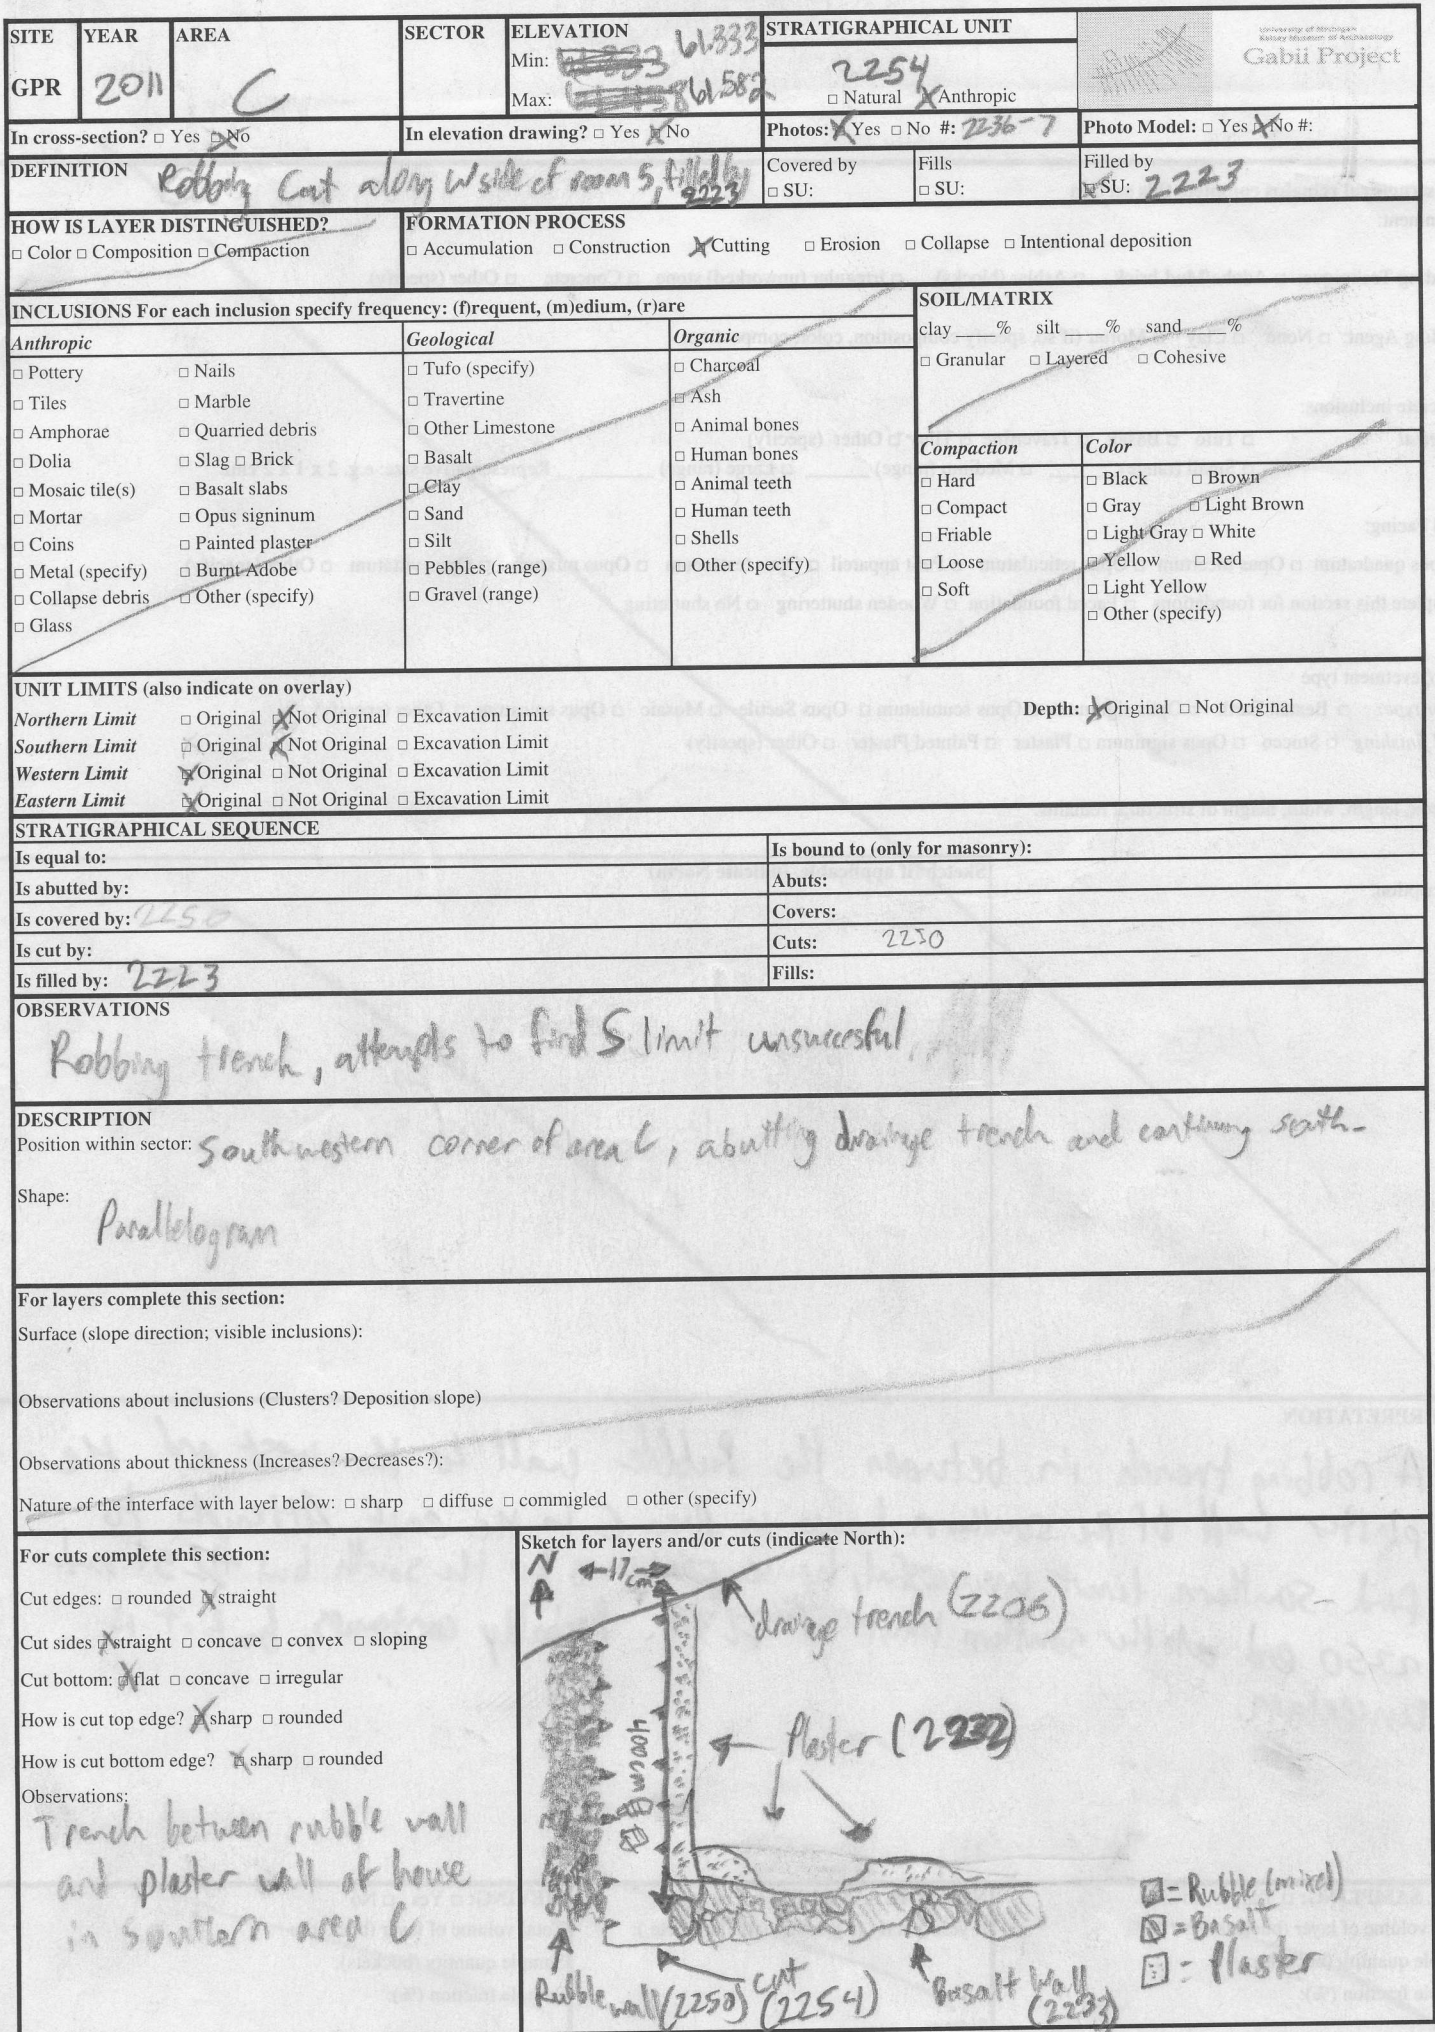 SITE YEAR AREA SECTOR ELEVATION STRATIGRAPHICAL UNIT
GPR 2011 C
Min: 61.333
Max: 61.582
2254
□ Natural ☒ Anthropic
University of Michigan
Kelsey Museum of Archaeology
Gabii Project
In cross-section? □ Yes ☒ No In elevation drawing? □ Yes ☒ No Photos: ☒ Yes □ No #: 2236-7 Photo Model: □ Yes ☒ No #:
DEFINITION Robbing Cut along W side of room 5, filled by 2223
Covered by □ SU: Fills □ SU: Filled by ☒ SU: 2223
HOW IS LAYER DISTINGUISHED?
□ Color □ Composition □ Compaction
FORMATION PROCESS
□ Accumulation □ Construction ☒ Cutting □ Erosion □ Collapse □ Intentional deposition
INCLUSIONS For each inclusion specify frequency: (f)requent, (m)edium, (r)are
Anthropic
□ Pottery □ Nails
□ Tiles □ Marble
□ Amphorae □ Quarried debris
□ Dolia □ Slag □ Brick
□ Mosaic tile(s) □ Basalt slabs
□ Mortar □ Opus signinum
□ Coins □ Painted plaster
□ Metal (specify) □ Burnt Adobe
□ Collapse debris □ Other (specify)
□ Glass
Geological
□ Tufo (specify)
□ Travertine
□ Other Limestone
□ Basalt
□ Clay
□ Sand
□ Silt
□ Pebbles (range)
□ Gravel (range)
Organic
□ Charcoal
□ Ash
□ Animal bones
□ Human bones
□ Animal teeth
□ Human teeth
□ Shells
□ Other (specify)
SOIL/MATRIX
clay ____% silt ____% sand ____%
□ Granular □ Layered □ Cohesive
Compaction
□ Hard
□ Compact
□ Friable
□ Loose
□ Soft
Color
□ Black □ Brown
□ Gray □ Light Brown
□ Light Gray □ White
□ Yellow □ Red
□ Light Yellow
□ Other (specify)
UNIT LIMITS (also indicate on overlay)
Northern Limit □ Original ☒ Not Original □ Excavation Limit Depth: ☒ Original □ Not Original
Southern Limit □ Original ☒ Not Original □ Excavation Limit
Western Limit ☒ Original □ Not Original □ Excavation Limit
Eastern Limit ☒ Original □ Not Original □ Excavation Limit
STRATIGRAPHICAL SEQUENCE
Is equal to: Is bound to (only for masonry):
Is abutted by: Abuts:
Is covered by: 2250 Covers:
Is cut by: Cuts: 2250
Is filled by: 2223 Fills:
OBSERVATIONS
Robbing trench, attempts to find S limit unsuccesful
DESCRIPTION
Position within sector: Southwestern corner of area C, abutting drainage trench and continuing south-
Shape:
Parallelogram
For layers complete this section:
Surface (slope direction; visible inclusions):
Observations about inclusions (Clusters? Deposition slope)
Observations about thickness (Increases? Decreases?):
Nature of the interface with layer below: □ sharp □ diffuse □ commigled □ other (specify)
For cuts complete this section:
Cut edges: □ rounded ☒ straight
Cut sides ☒ straight □ concave □ convex □ sloping
Cut bottom: ☒ flat □ concave □ irregular
How is cut top edge? ☒ sharp □ rounded
How is cut bottom edge? ☒ sharp □ rounded
Observations:
Trench between rubble wall
and plaster wall of house
in southern area C
Sketch for layers and/or cuts (indicate North):
N 17 cm
drainage trench (2206)
400 cm
Plaster (2232)
= Rubble (mixed)
= Basalt
= Plaster
Rubble wall (2250)
cut (2254)
Basalt Wall (2233)